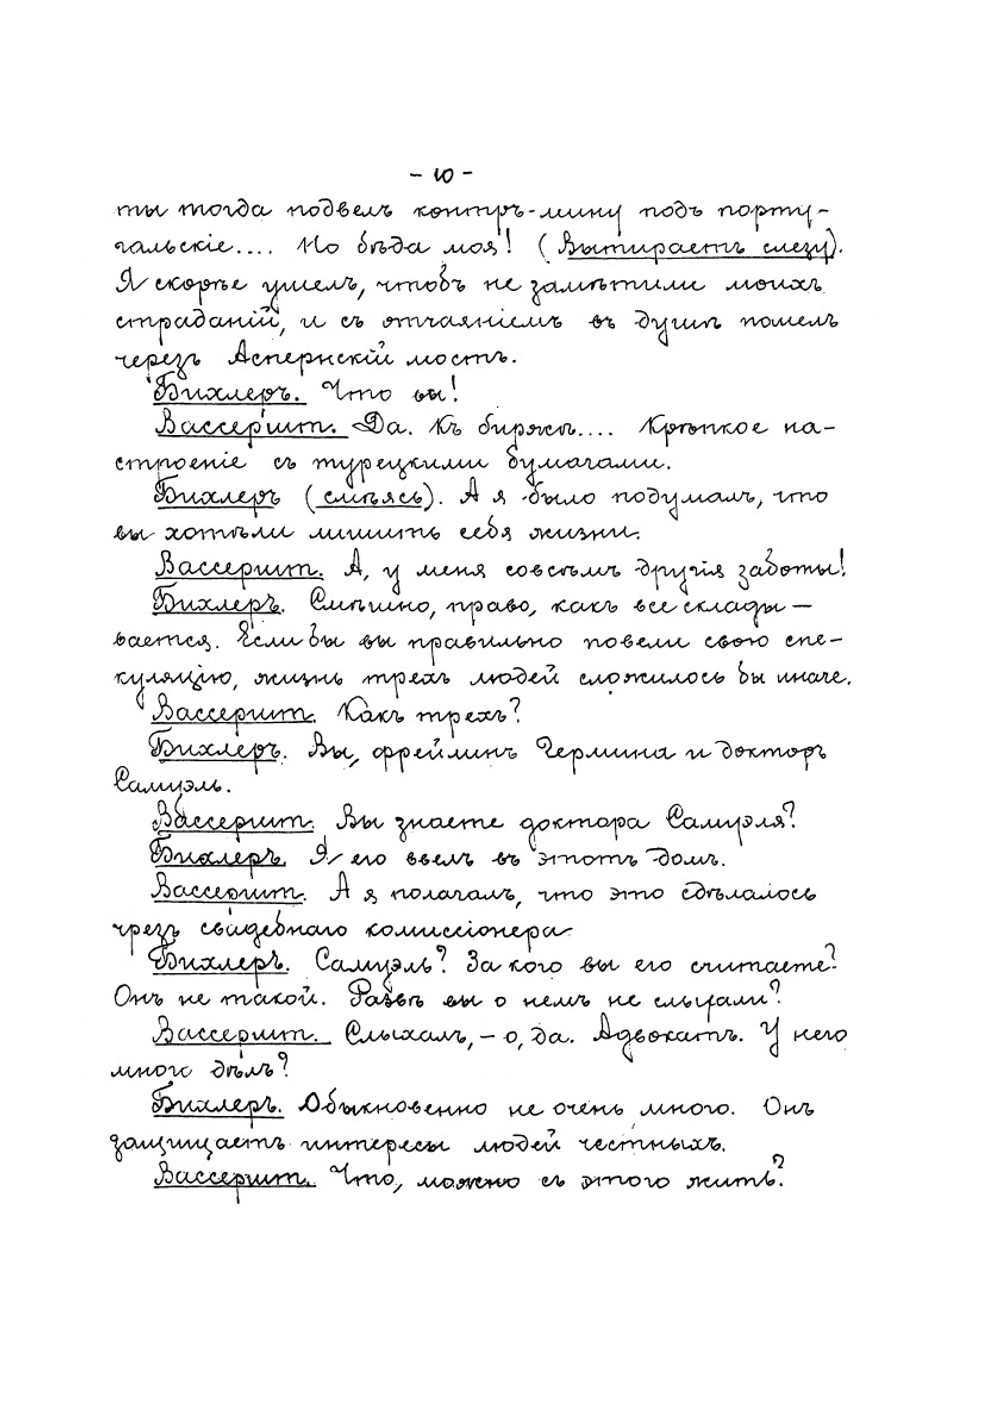 - 10 -
ты тогда подвелъ контръ-мину подъ порту-
гальскіе.... Но бѣда моя! (Вытираетъ слезу).
Я скорѣе ушелъ, чтобъ не замѣтили моихъ
страданій, и съ отчаяніемъ въ душѣ пошелъ
черезъ Аспернскій мостъ.
Бихлеръ. Что вы!
Вассерштт. Да. Къ биржѣ.... Крѣпкое на-
строеніе съ турецкими бумагами.
Бихлеръ (смѣясь). А я было подумалъ, что
вы хотѣли лишить себя жизни.
Вассерштт. А, у меня совсѣмъ другія заботы!
Бихлеръ. Смѣшно, право, какъ все склады-
вается. Если бы вы правильно повели свою спе-
куляцію, жизнь трехъ людей сложилось бы иначе.
Вассерштт. Какъ трехъ?
Бихлеръ. Вы, фрейлинъ Гермина и докторъ
Самуэль.
Вассерштт. Вы знаете доктора Самуэля?
Бихлеръ. Я его ввелъ въ этотъ домъ.
Вассерштт. А я полагалъ, что это сдѣлалось
чрезъ свадебнаго комиссіонера.
Бихлеръ. Самуэль? За кого вы его считаете?
Онъ не такой. Развѣ вы о немъ не слыхали?
Вассерштт. Слыхалъ, - о, да. Адвокатъ. У него
много дѣлъ?
Бихлеръ. Обыкновенно не очень много. Онъ
защищаетъ интересы людей честныхъ.
Вассерштт. Что, можно съ этого жить?